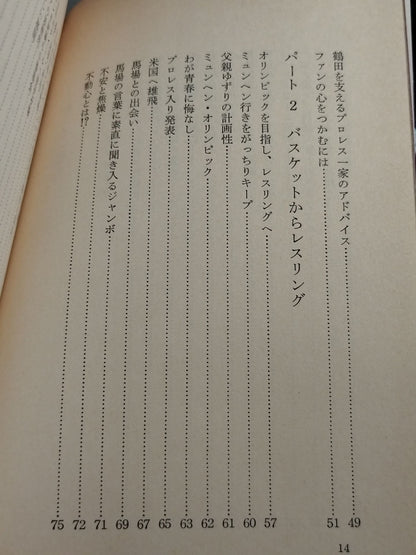 鶴田を支えるプロレス一家のアドバイス……49
ファンの心をつかむには……51
パート 2 バスケットからレスリング
オリンピックを目指し、レスリングへ……57
ミュンヘン行きをがっちりキープ……60
父親ゆずりの計画性……61
ミュンヘン・オリンピック……62
わが青春に悔なし……63
プロレス入り発表……65
米国へ雄飛……67
馬場との出会い……69
馬場の言葉に素直に聞き入るジャンボ……71
不安と焦燥……72
不動心とは!?……75
14